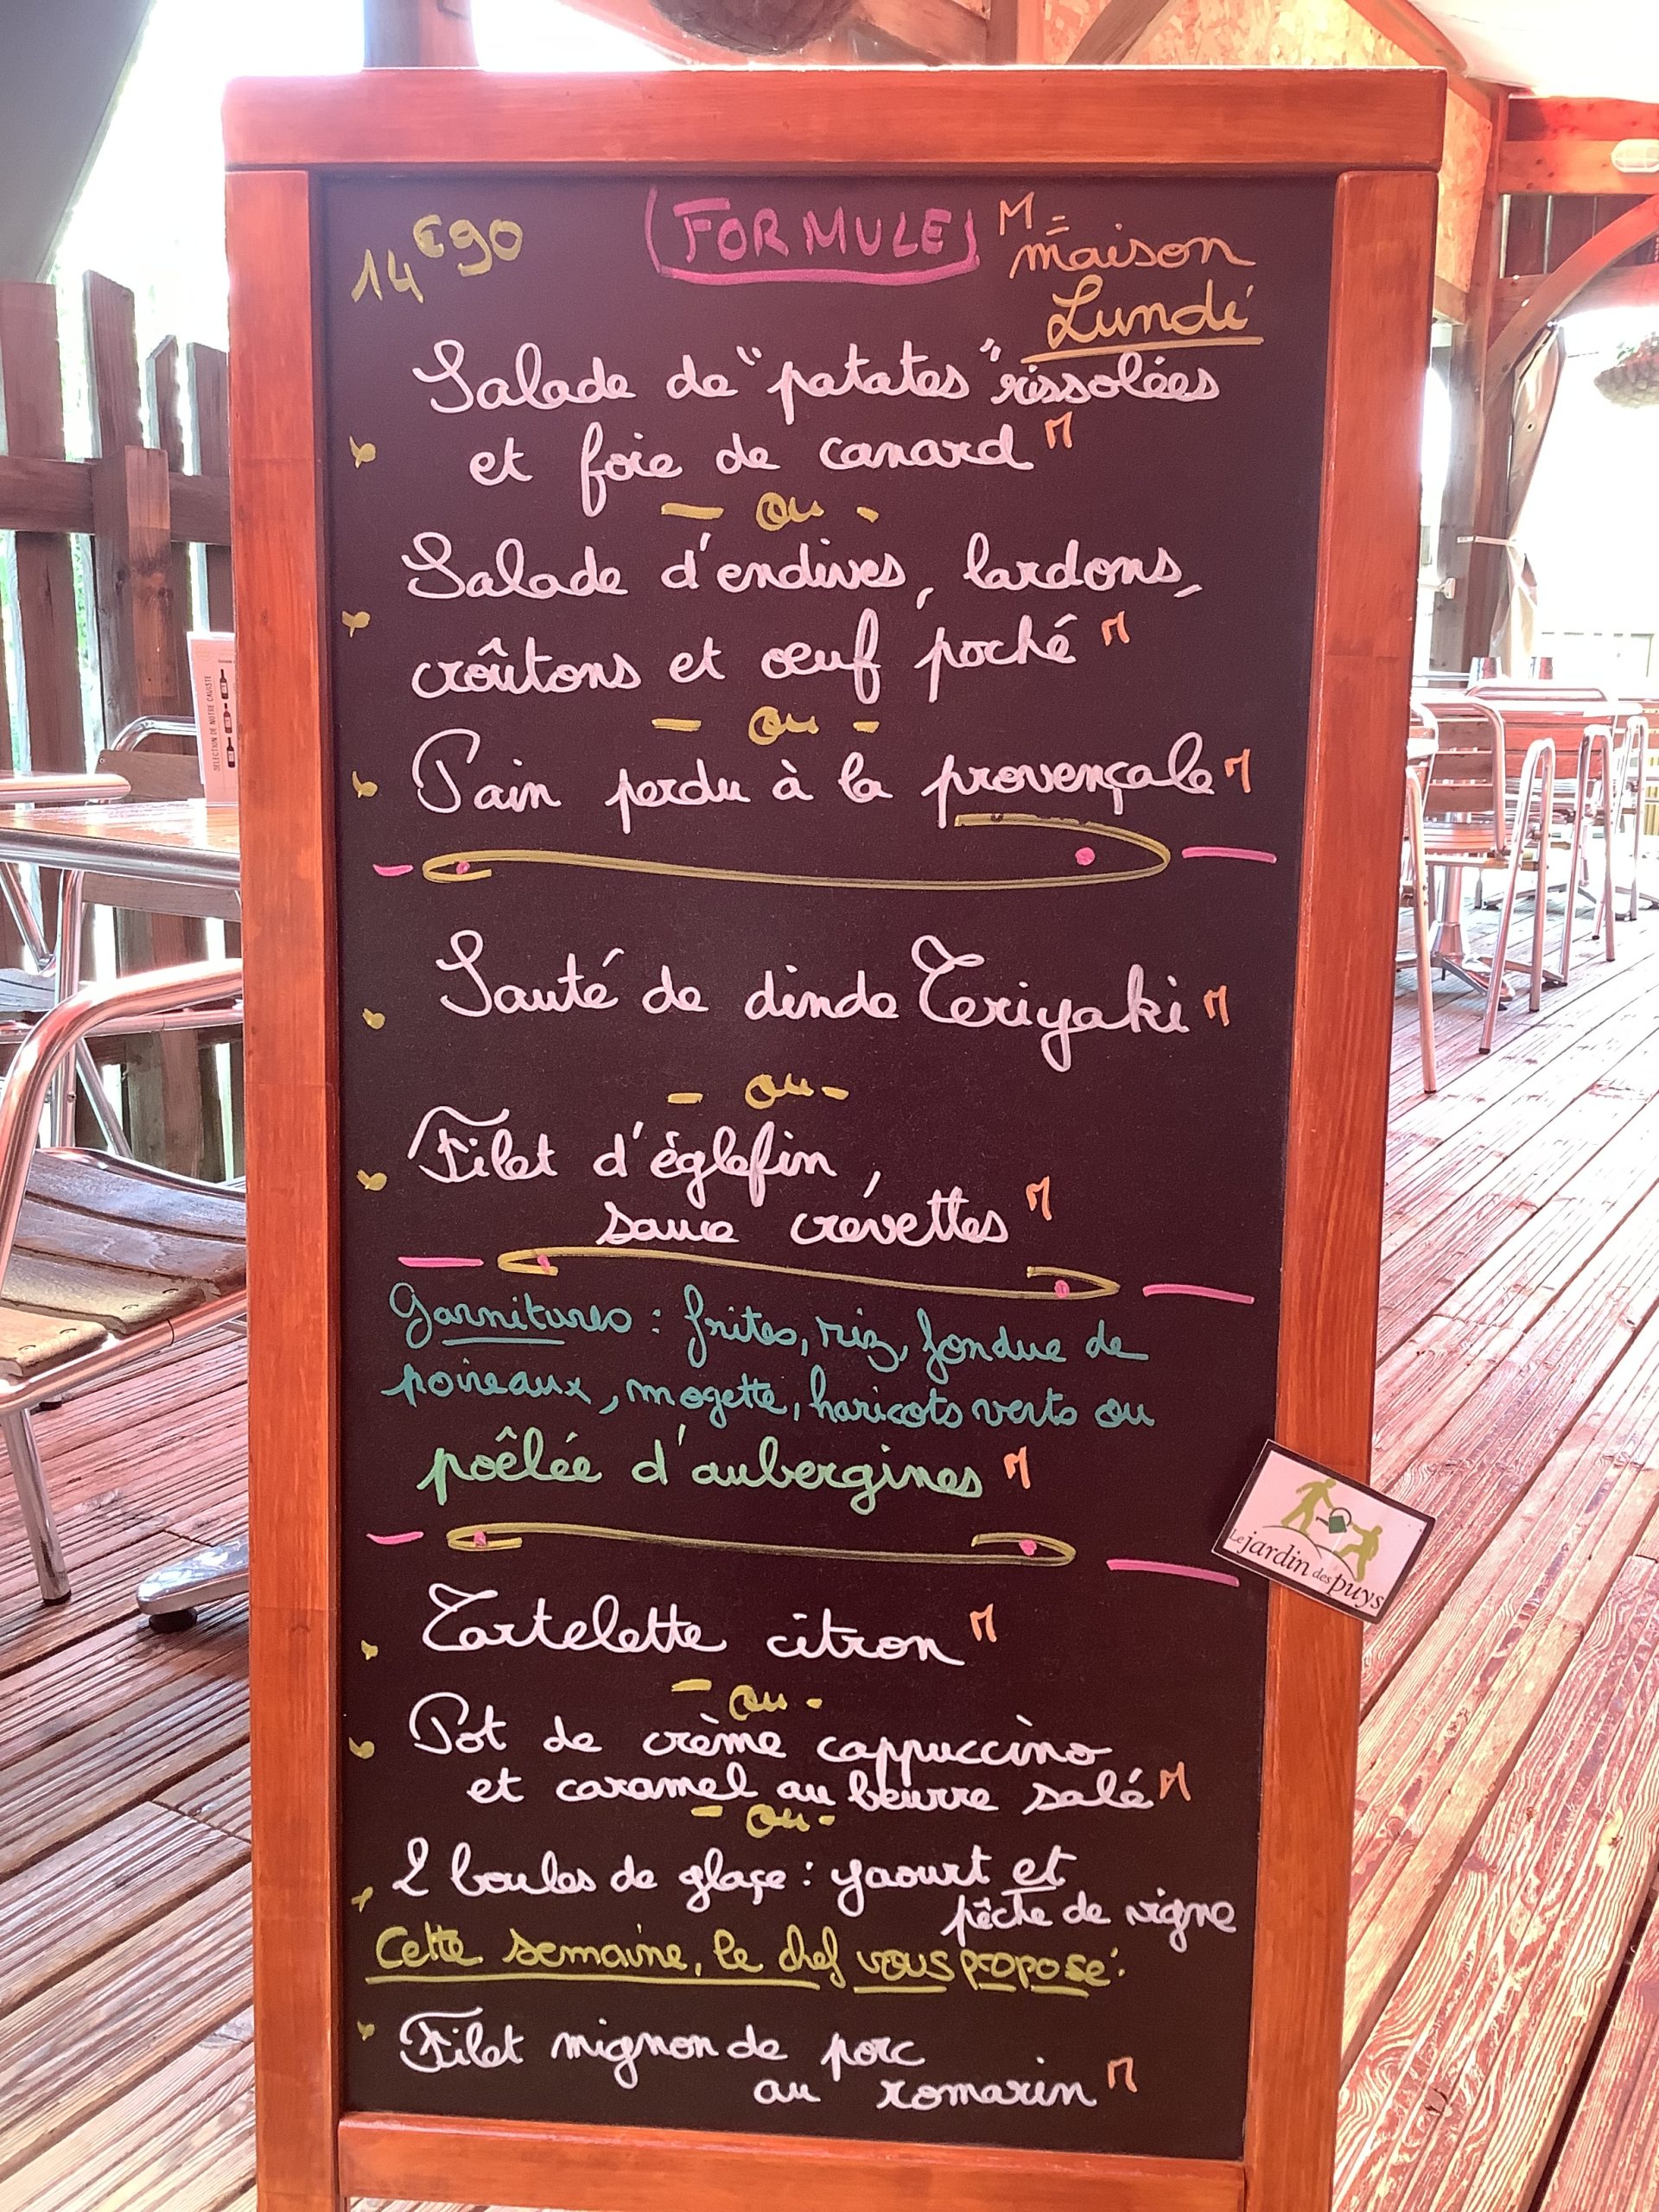 14€90
FORMULE
M =
maison
Lundi
Salade de "patates" rissolées
et foie de canard M
- ou -
Salade d'endives, lardons,
croûtons et oeuf poché M
- ou -
Pain perdu à la provençale M
Sauté de dinde Teriyaki M
- ou -
Filet d'églefin,
sauce crévettes M
Garnitures : frites, riz, fondue de
poireaux, mogette, haricots verts ou
poêlée d'aubergines M
Tartelette citron M
- ou -
Pot de crème cappuccino
et caramel au beurre salé M
- ou -
2 boules de glaçe : yaourt et
pêche de vigne
Cette semaine, le chef vous propose :
Filet mignon de porc
au romarin M
Le jardin des puys
SÉLECTION DE NOTRE CAVISTE